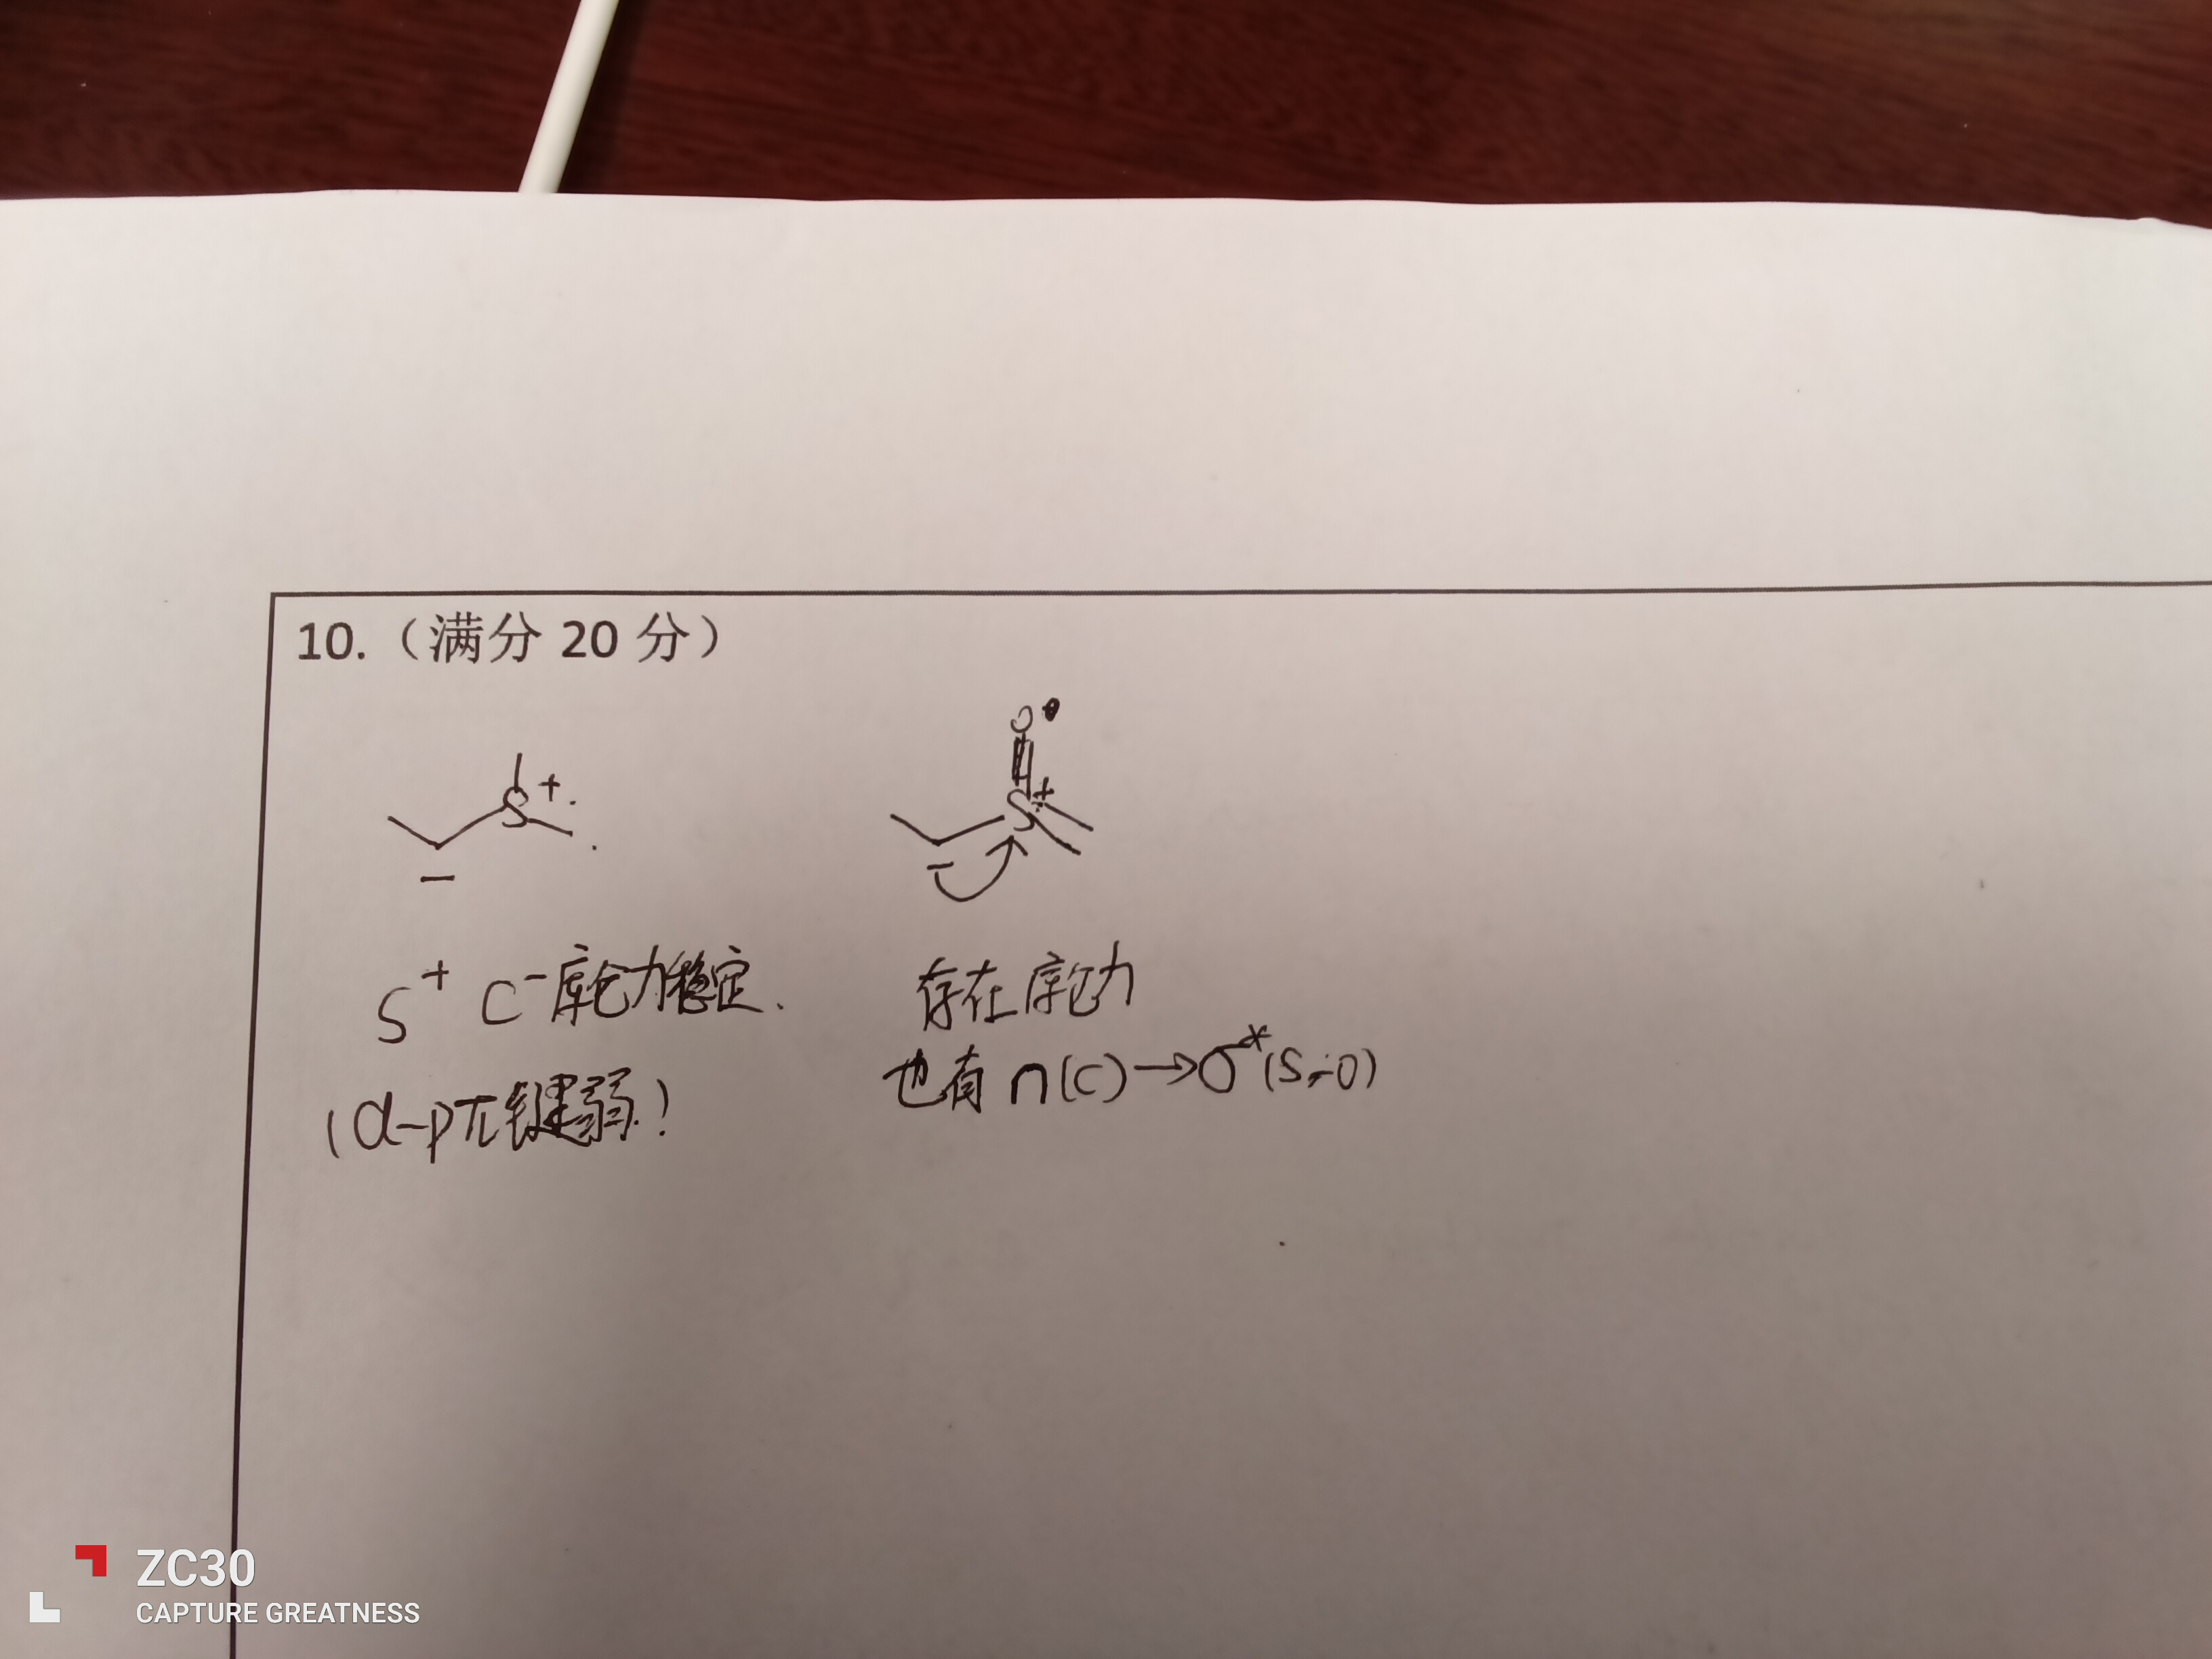 10.（满分 20 分）
O
S+
S+
S+ C-库仑力稳定.
存在库仑力
(d-pπ键弱.)
也有 n(C)→σ*(S-O)
ZC30
CAPTURE GREATNESS